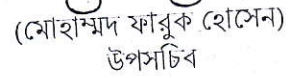 (মোহাম্মদ ফারুক হোসেন)
উপসচিব